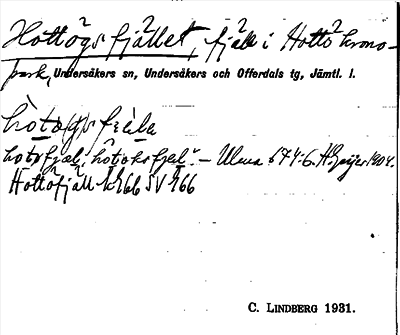 Hottögsfjället, fjäll i Hottö krono-
park, Undersåkers sn, Undersåkers och Offerdals tg, Jämtl. l.
hòtǫgsfiæ̀la
hotsfjæl, hótoksfjæl – Ulma 674:6. H. Geijer 1904.
Hottöfjäll kr 66 SV 766
C. LINDBERG 1931.